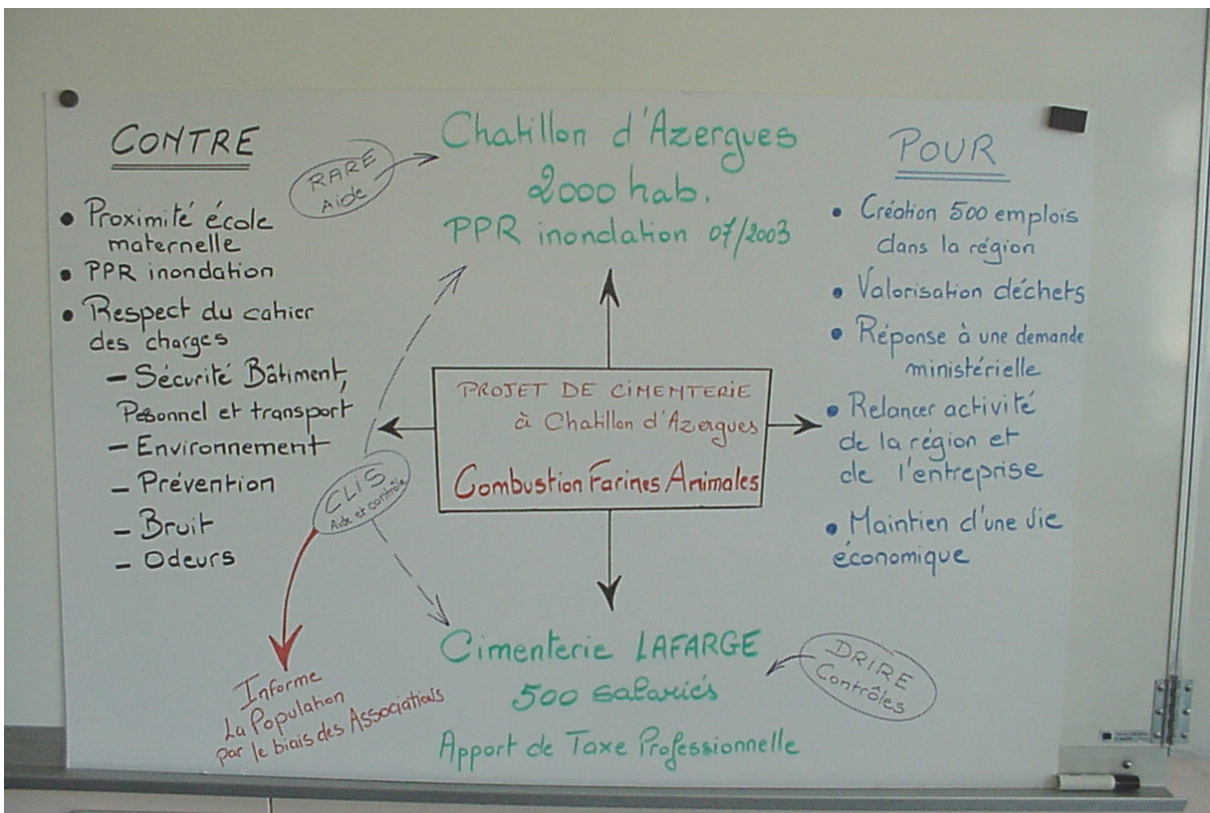 CONTRE
• Proximité école
maternelle
• PPR inondation
• Respect du cahier
des charges
– Sécurité Bâtiment,
Pesonnel et transport
– Environnement
– Prévention
– Bruit
– Odeurs
RARE
Aide
Chatillon d'Azergues
2000 hab.
PPR inondation 07/2003
PROJET DE CIMENTERIE
à Chatillon d'Azergues
Combustion Farines Animales
CLIS
Aide et contrôle
Informe
La Population
par le biais des Associations
Cimenterie LAFARGE
500 salariés
Apport de Taxe Professionnelle
DRIRE
Contrôles
POUR
• Création 500 emplois
dans la région
• Valorisation déchets
• Réponse à une demande
ministérielle
• Relancer activité
de la région et
de l'entreprise
• Maintien d'une vie
économique